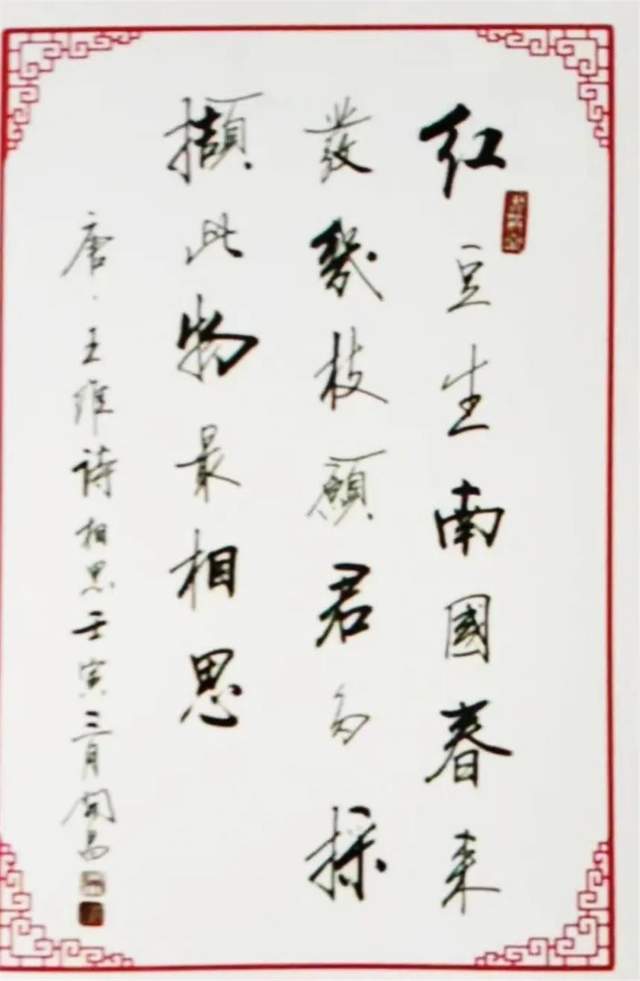 红豆生南國春来
發幾枝願君多採
擷此物最相思
唐·王维诗相思壬寅三月